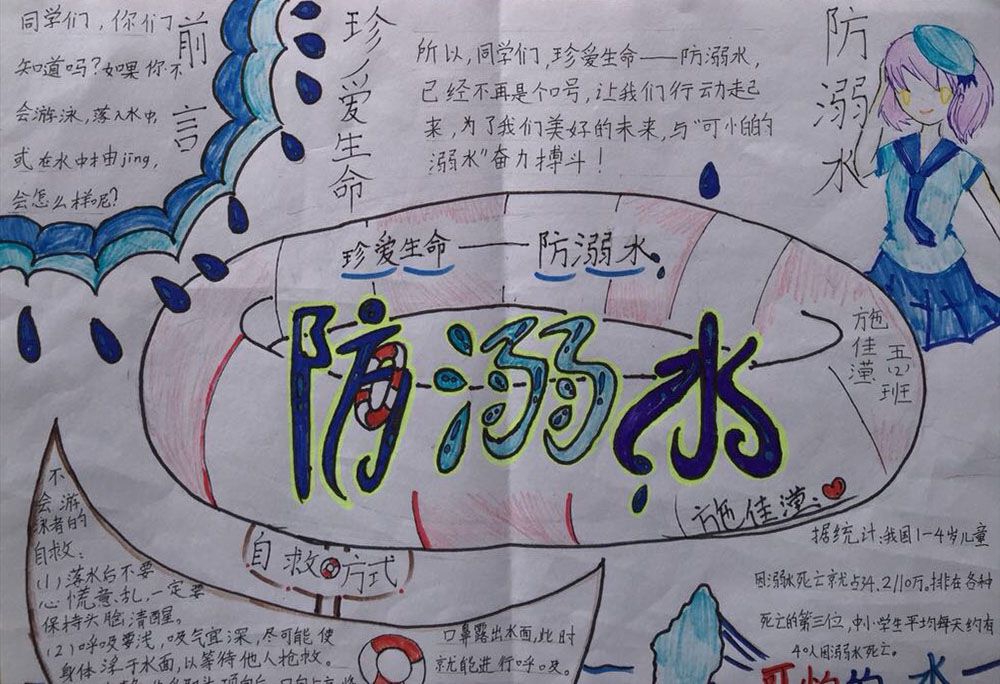 前言
同学们，你们
知道吗？如果你不
会游泳，落入水中，
或在水中抽jing，
会怎么样呢？
珍爱生命
所以，同学们，珍爱生命——防溺水，
已经不再是个口号，让我们行动起
来，为了我们美好的未来，与“可怕的
溺水”奋力搏斗！
防溺水
珍爱生命——防溺水
防溺水
施佳潢
五(2)班
施佳潢
自救方式
不
会游
泳者的
自救：
(1)落水后不要
心慌意乱，一定要
保持头脸清醒。
(2)呼吸要浅，吸气宜深，尽可能使
身体浮于水面，以等待他人抢救。
口鼻露出水面，此时
就能进行呼吸。
据统计：我国1-4岁儿童
因溺水死亡就占34.2/10万。排在各种
死亡的第三位，中小学生平均每天约有
40人因溺水死亡。
可怕的水